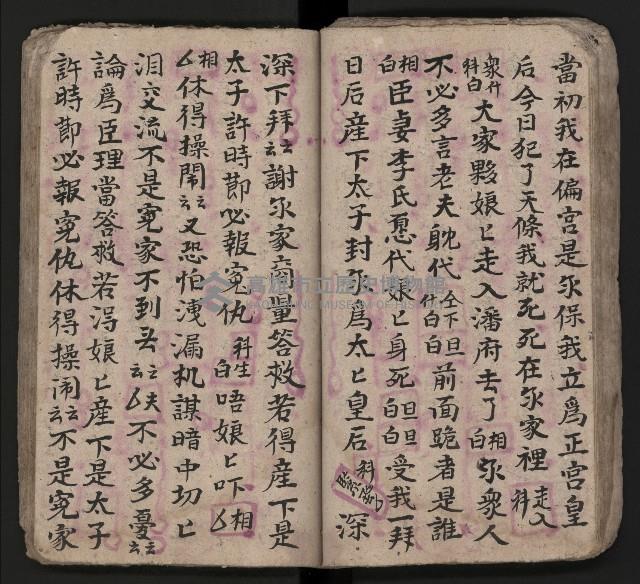 當初我在偏宮是尔保我立為正宮皇
后今日犯了天條我就死死在尔家裡走入科
衆介科白大家夥娘匕走入潘府去了相白尔衆人
不必多言老夫躭代仝下旦白前面跪者是誰
相白臣妻李氏愿代娘匕身死旦白受我一拜
日后產下太子封尔為太匕皇后科 深
深下拜云云謝尔家商量答救若得產下是
太子許時節必報寃仇科生白唔娘匕吓相
厶休得操鬧云云又恐怕洩漏机謀暗中切匕
泪交流不是寃家不到头云云厶夫不必多憂云云
論為臣理當答救若淂娘匕產下是太子
許時節必報寃仇休得操鬧云云不是寃家
高雄市立歷史博物館
KAOHSIUNG MUSEUM OF HISTORY